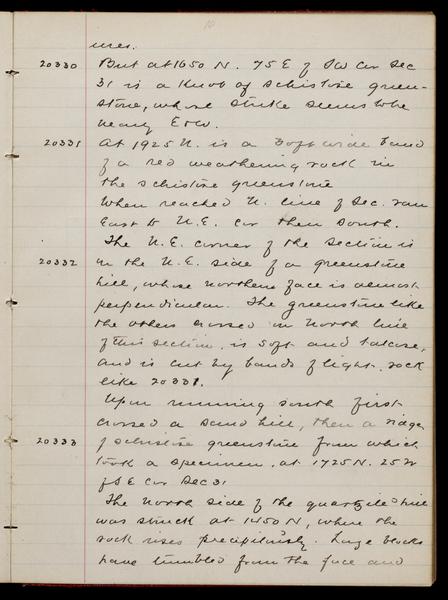 ures.
20330 But at 1650 N. 75 E of SW Cor Sec
31 is a Knob of schistose green-
stone, whose strike seems to be
nearly E & W.
20331 At 1925 N. is a 30 ft wide band
of a red weathering rock in
the schistose greenstone
When reached N. line of Sec. ran
East to N.E. Cor then South.
The N.E. corner of the section is
20332 on the N.E. side of a greenstone
hill, whose northern face is almost
perpendicular. The greenstone like
the others crossed on North line
of this section, is soft and talcose,
and is cut by bands of light rock
like 20331.
Upon running south first
crossed a sand hill, then a ridge
20333 of schistose greenstone from which
took a specimen, at 1725 N. 25 W
of S E Cor Sec 31
The North side of the quartzite hill
was struck at 1450 N, where the
rock rises precipitously. Large blocks
have tumbled from the face and